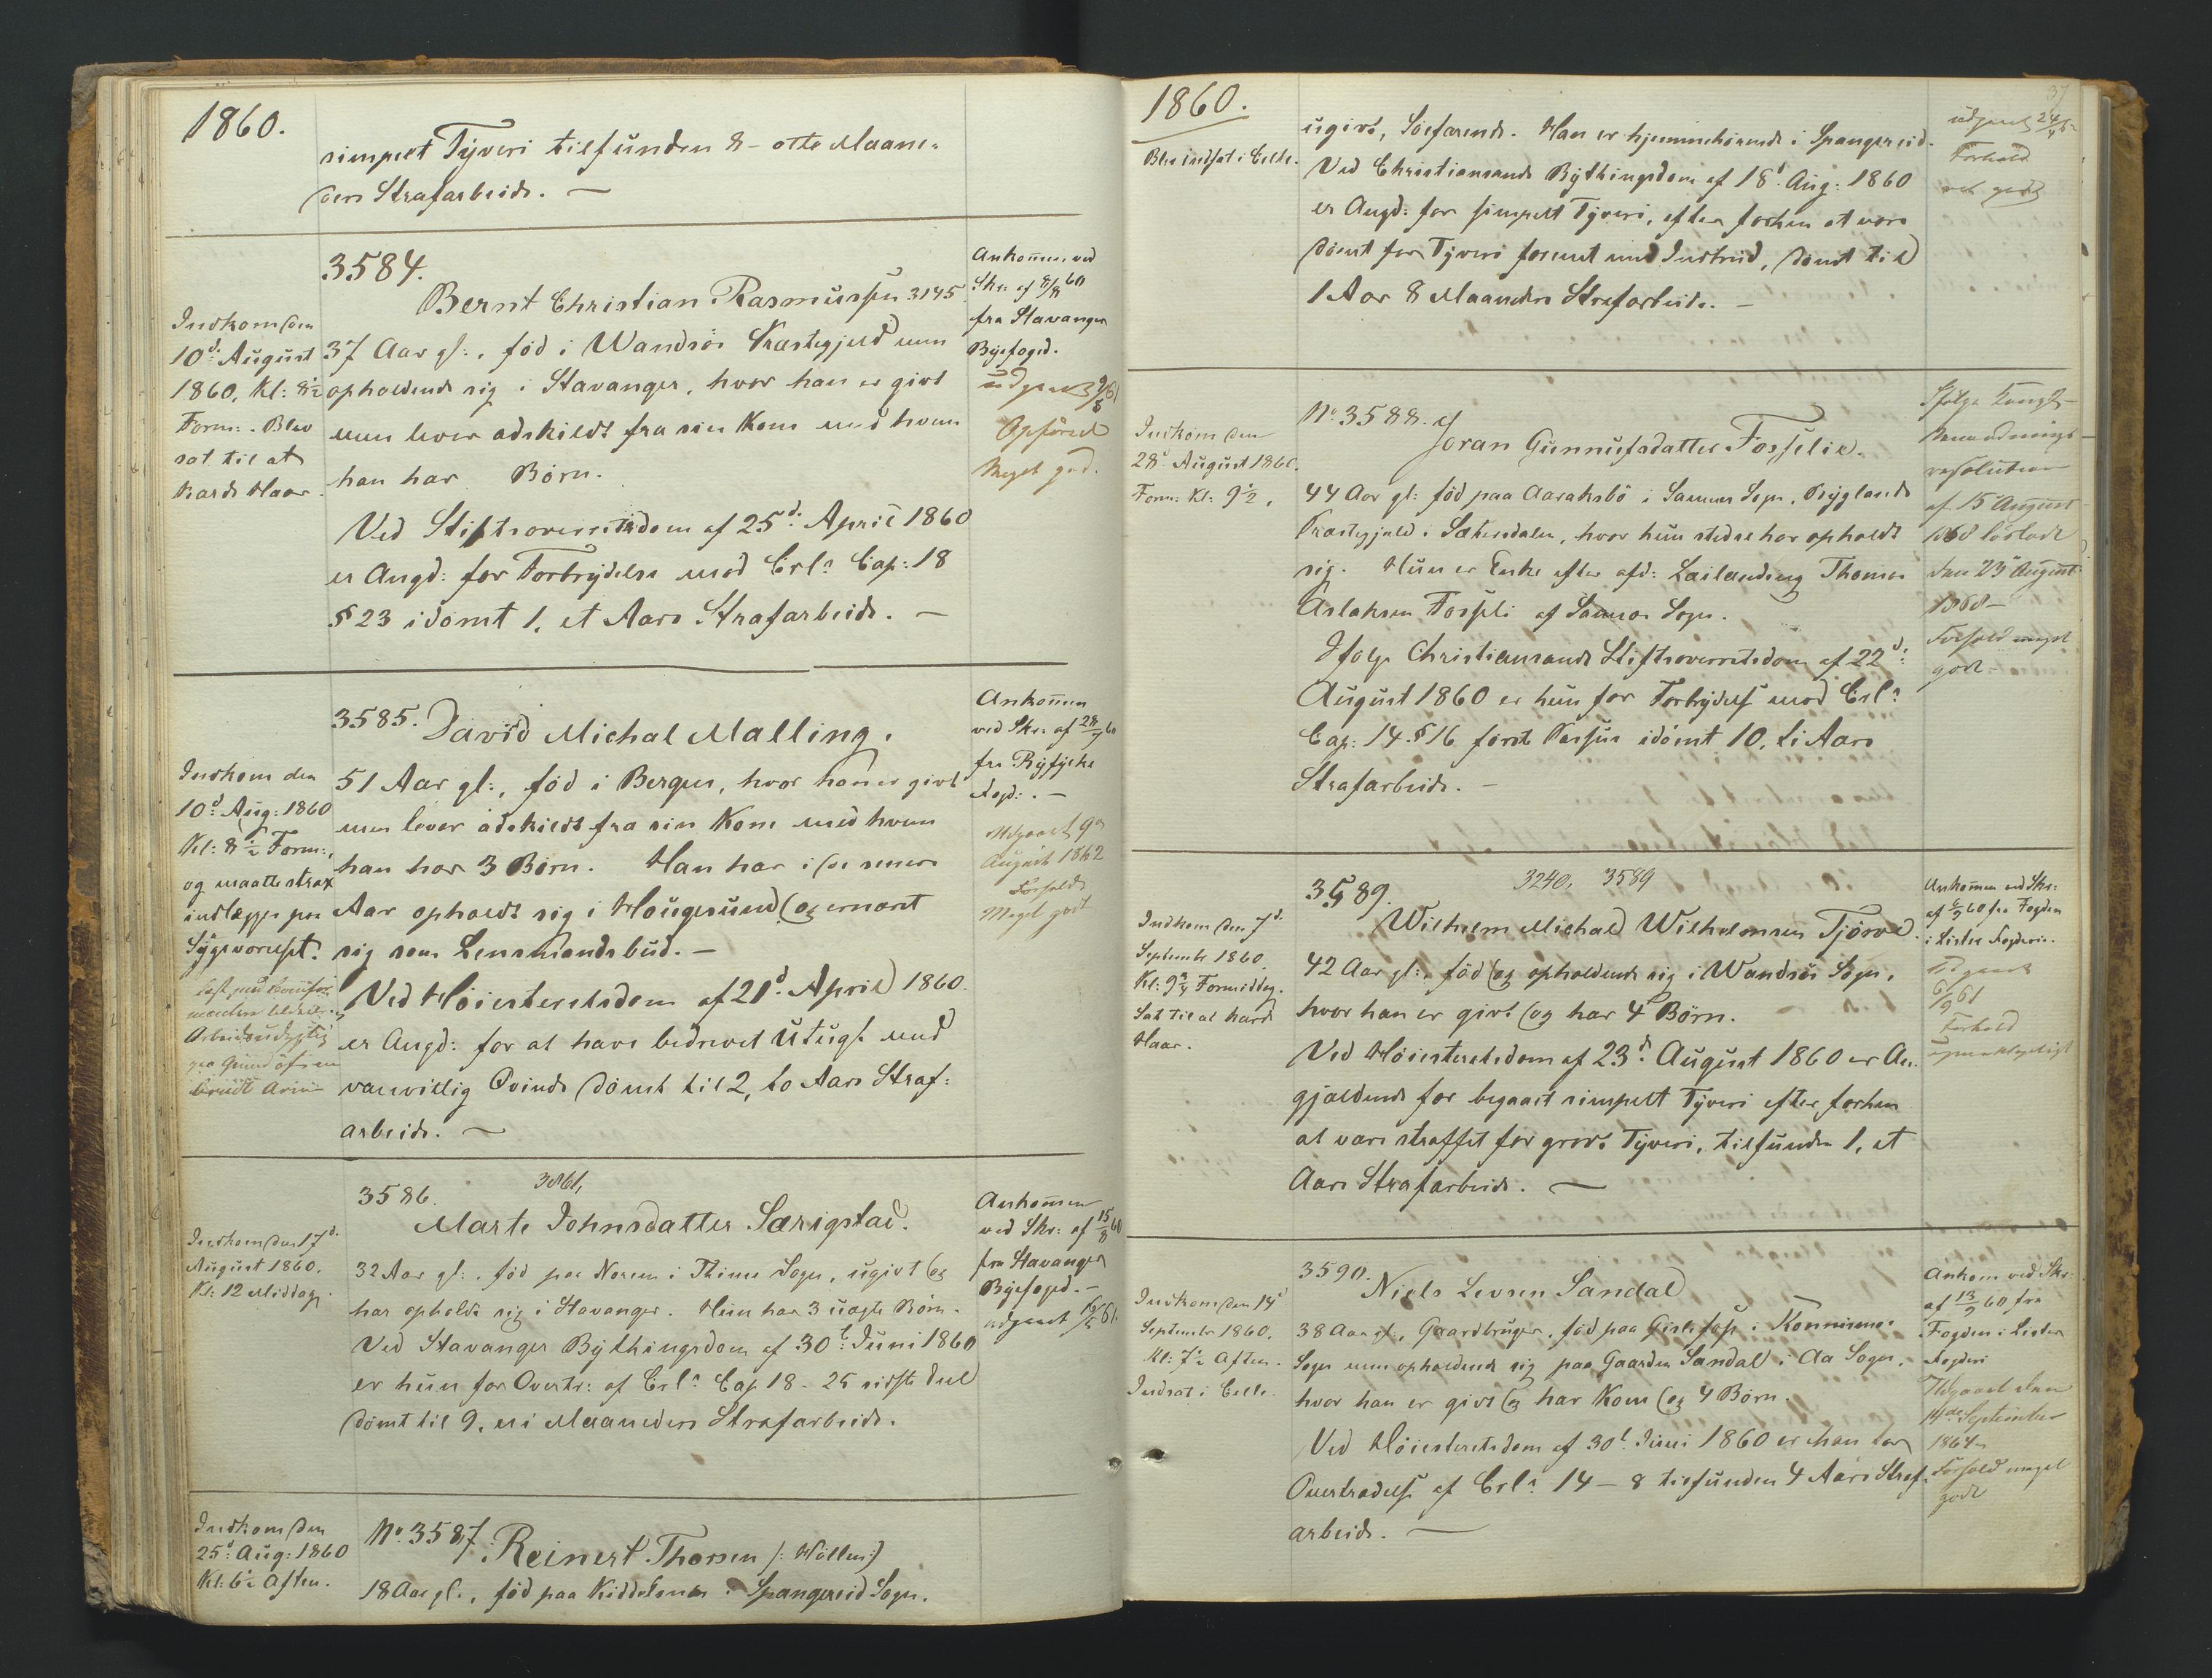 1860.
simpelt Tyveri tilfunden 8 - otte Maane-
ders Strafarbeide. —
3584.
Bernt Christian Rasmussen 3145
Indkom den
10d: August
1860, Kl: 8½
Form:. Blev
sat til at
Karde Haar.
37 Aar gl:, föd i Wandsöe Præstegjeld men
opholdende sig i Stavanger, hvor han er givt
men lever adskildt fra sin Kone med hvem
han har Börn.
Ved Stiftsoverretsdom af 25d: April 1860
er Angd: for Forbrydelse mod Crl: Cap: 18
§ 23 idömt 1, et Aars Strafarbeide. —
Ankommen ved
Skr: af 8/8 60
fra Stavanger
Byefoged.
udgaaet 9/8 61
Opförsel
Meget god.
3585. David Michal Malling.
Indkom den
10d: Aug: 1860
Kl: 8½ Form:,
og maatte strax
indlægges paa
Sygeværelset.
Arbeidsudygtig
paa Grund af en
brudt Arm
51 Aar gl:, föd i Bergen, hvor han er givt
men lever adskildt fra sin Kone med hvem
han har 3 Börn. Han har i de senere
Aar opholdt sig i Hougesund og ernæret
sig som Lensmandsbud. —
Ved Höiesteretsdom af 21d: April 1860
er Angd: for at have bedrevet Utugt med
vanvittig Qvinde dömt til 2, to Aars Straf-
arbeide. —
Ankommen
ved Skr: af 28/7 60
fra Ryfylke
Fogd:. —
Udgaaet 9de
August 1862
Forhold
Meget godt
3586. 3861,
Marte Johnsdatter Særigstad.
Indkom den 17d:
August 1860.
Kl: 12 Middag.
32 Aar gl:, föd paa Norem i Thime Sogn, ugivt og
har opholdt sig i Stavanger. Hun har 3 uægte Börn.
Ved Stavanger Bythingsdom af 30t: Juni 1860
er hun for Overtr: af Crl: Cap 18 - 25 sidste Deel
dömt til 9, ni Maaneders Strafarbeide.
Ankommen
ved Skr: af 15/8 60
fra Stavanger
Byefoged. —
udgaaet 16/5 61.
Indkom den
25d: Aug: 1860
Kl: 6½ Aften.
No. 3587. Reinert Thorsen /: Hollen:/
18 Aar gl:, föd paa Kiddelsnes i Spangereid Sogn,
1860.
37
Blev indsat i Celle.
ugivt, Söefarende. Han er hjemmehörende i Spangereid.
Ved Christiansands Bythingsdom af 18d: Aug: 1860
er Angd: for simpelt Tyveri, efter forhen at være
dömt for Tyveri forenet med Indbrud, dömt til
1 Aar 8 Maaneders Strafarbeide. —
udgaaet 24/4
Forhold
godt
No. 3588.
Joran Gunnufsdatter Fosselie.
Indkom den
28d August 1860.
Form: Kl: 9½.
44 Aar gl: föd paa Aaraksbö i Sannes Sogn, Byglands
Præstegjeld i Sætersdalen, hvor hun stedse har opholdt
sig. Hun er Enke efter afd: Lailænding Thomas
Aslaksen Fosseli af Sannes Sogn.
Ifölge Christiansands Stiftsoverretsdom af 22d:
August 1860 er hun for Forbrydelse mod Crl:
Cap: 14. § 16 förste Passus idömt 10, ti Aars
Strafarbeide. —
Ifölge Kongl-
Benaadnings-
resolution
af 15 August
1868 lösladt
den 29 August
1868 -
Forhold meget
godt -
3589. 3240, 3589
Wilhelm Michal Wilhelmsen Tjörve.
Indkom den 7d:
September 1860.
Kl: 9¾ Formiddag.
Sat til at karde
Haar.
42 Aar gl:, föd og opholdende sig i Wandsöe Sogn,
hvor han er givt og har 4 Börn.
Ved Höiesteretsdom af 23d: August 1860 er An-
gjældende for begaaet simpelt Tyveri efter forhen
at være straffet for grovt Tyveri, tilfunden 1, et
Aars Strafarbeide. —
Ankommen ved Skr:
af 6/9 60 fra Fogden
i Lister Fogderie.
Udgaaet
6/9 61
Forhold
3590.
Niels Levsen Sandal
Indkom den 14d
September 1860.
Kl: 7½ Aften.
Indsat i Celle.
38 Aar gl:, Gaardbruger, föd paa Gislefos i Konnismo
Sogn men opholdende sig paa Gaarden Sandal i Aa Sogn,
hvor han er givt og har Kone og 4 Börn.
Ved Höiesteretsdom af 30t: Juni 1860 er han for
Overtrædelse af Crl: 14 — 8 tilfunden 4 Aars Straf-
arbeide. —
Ankom ved Skr:
af 13/9 60 fra
Fogden i Lister
Fogderi
Udgaaet den
14de September
1864
Forhold meget
godt